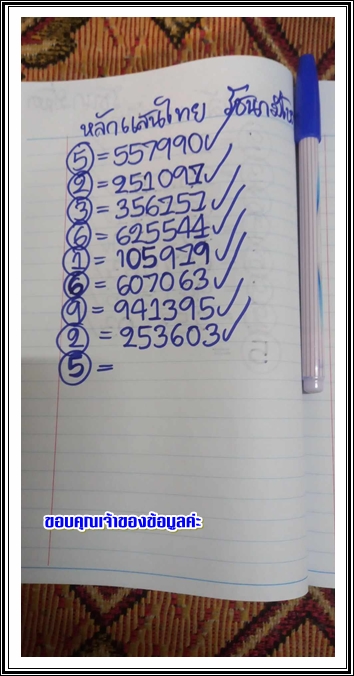 หลักแสนไทย
5 = 557990 ✓
2 = 251097 ✓
3 = 356151 ✓
6 = 625544 ✓
1 = 105919 ✓
6 = 607063 ✓
9 = 941395 ✓
2 = 253603 ✓
5 =
ขอบคุณเจ้าของข้อมูลค่ะ